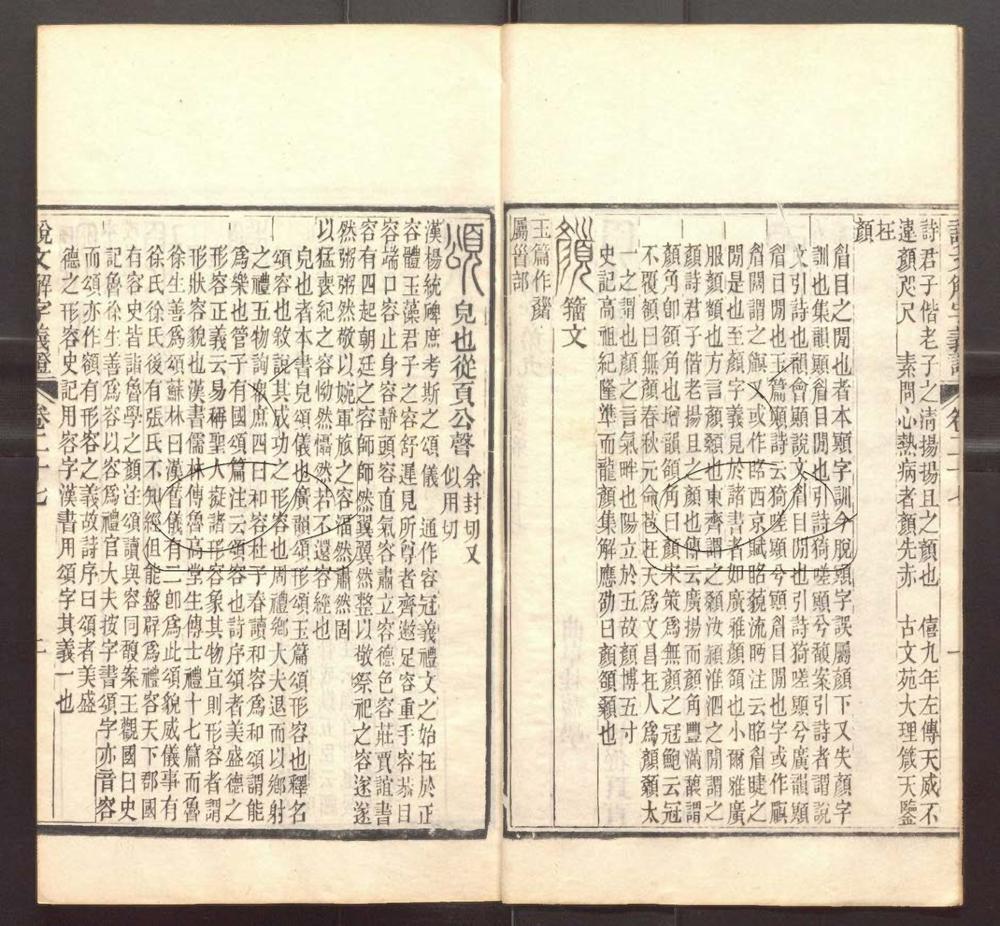 詩君子偕老子之清揚揚且之顏也　僖九年左傳天威不
違顏咫尺　素問心熱病者顏先赤　古文苑大理箴天鑒
在顏
眉目之閒也者本顯字訓今脫顯字誤屬顏下又失顏字
訓也集韻顯眉目閒也引詩猗嗟顯兮馥案引詩者謂說
文引詩也韻會顯說文眉目閒也引詩猗嗟顯兮廣韻顯
眉目閒也玉篇顯詩云猗嗟顯兮顯眉目閒也字或作
眉閒謂之又或作略西京賦眳藐流眄注云眳眉睫之
閒是也至顏字義見於諸書者如廣雅顏頟也小爾雅廣
服顏頟也方言顏頟也東齊謂之顙汝潁淮泗之閒謂之
顏詩君子偕老揚且之顏也傳云廣揚而顏角豐滿
顏角卽頟角也增韻頟角曰顏宋策爲無顏之冠鮑云冠
不覆頟頟曰無顏春秋元命苞在天爲文昌在人爲顏顙太
一之謂也顏之言氣畔也陽立於五故顏博五寸
史記高祖紀隆準而龍顏集解應劭曰顏頟顙也
籀文
玉篇作
屬𦣻部
頌　皃也從頁公聲　余封切又
似用切
漢楊統碑庶考斯之頌儀　通作容冠義禮文之始在於正
容體玉藻君子之容舒遲見所尊者齊遫足容重手容恭目
容端口容止身容靜頭容直氣容肅立容德色容莊賈誼書
容有四起朝廷之容師師然翼翼然整以敬祭祀之容遂遂
然粥粥然敬以婉軍旅之容湢然肅然固
以猛喪紀之容怮然懾然若不還容經也
皃也者本書皃頌儀也廣韻頌形頌玉篇頌形容也釋名
頌容也敘說其成功之形容也周禮鄉大夫退而以鄉射
之禮五物詢眾庶四曰和容杜子春讀和容爲和頌謂能
爲樂也管子有國頌篇注云頌容也詩序頌者美盛德之
形容正義云易稱聖人擬諸形容象其物宜則形容者謂
形狀容貌也漢書儒林傳魯高堂生傳士禮十七篇而魯
徐生善爲頌蘇林曰漢舊儀有二郎爲此頌貌威儀事有
徐氏徐氏後有張氏不知經但能盤辟爲禮容天下郡國
有容史皆詣魯學之顏注頌讀與容同馥案王觀國曰史
記魯徐生善爲容以容爲禮官大夫按字書頌字亦音容
而頌亦作額有形容之義故詩序曰頌者美盛
德之形容史記用容字漢書用頌字其義一也
說文解字義證　卷二十七　二